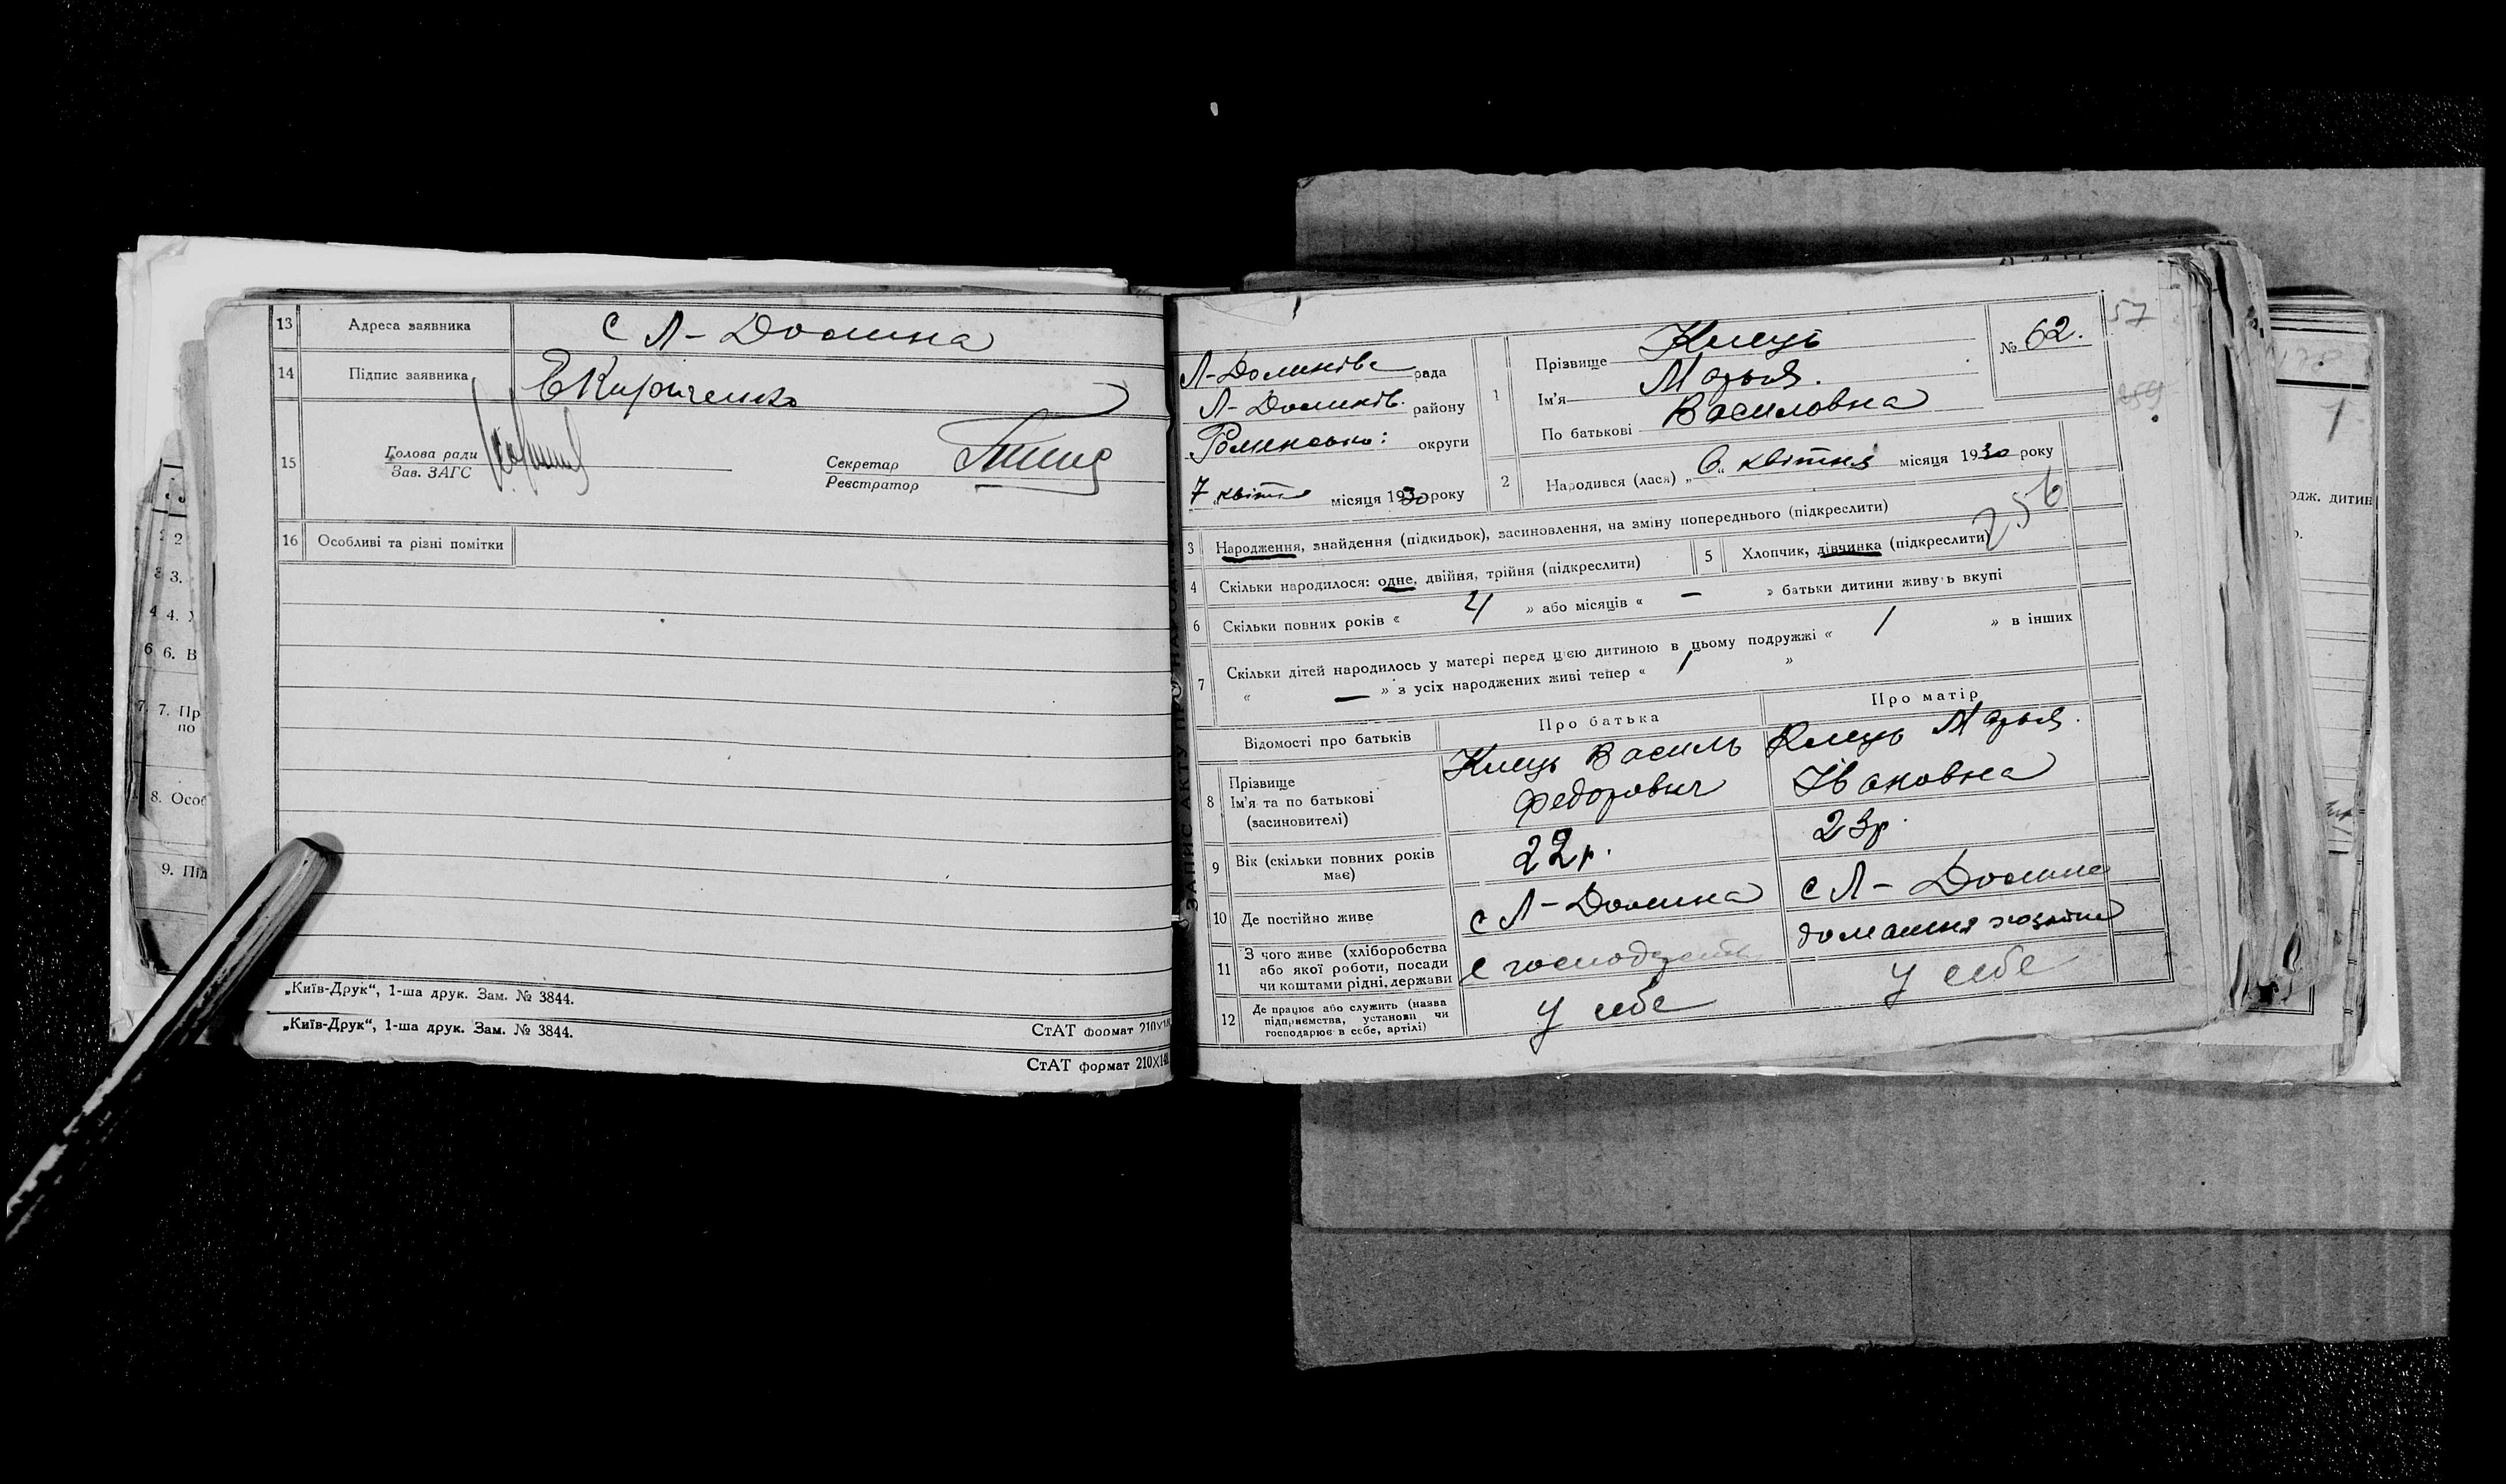 13 Адреса заявника с Л-Долина
14 Підпис заявника ЕКириченко
15 Голова ради
Зав. ЗАГС
Секретар
Реєстратор
16 Особливі та різні помітки
„Київ-Друк“, 1-ша друк. Зам. № 3844.
СтАТ формат 210×148
„Київ-Друк“, 1-ша друк. Зам. № 3844.
СтАТ формат 210×148
2
3.
4 4.
6 6. В
7. 7. Пр
по
8. Особ
9. Під
Л-Долинівс рада
Л-Долинів. району
Роменсько: округи
7 „ квітня місяця 1930 року
1 Прізвище Кмець
Ім'я Марья.
По батькові Василовна
№ 62.
57
2 Народився (лася) „6 „ квітня місяця 1930 року
256
3 Народження, знайдення (підкидьок), засиновлення, на зміну попереднього (підкреслити)
4 Скільки народилося: одне, двійня, трійня (підкреслити)
5 Хлопчик, дівчинка (підкреслити)
6 Скільки повних років « 4 » або місяців « — » батьки дитини живуть вкупі
7 Скільки дітей народилось у матері перед цією дитиною в цьому подружжі « 1 » в інших
« — » з усіх народжених живі тепер « 1 »
Відомості про батьків
Про батька
Про матір
8 Прізвище
Ім'я та по батькові
(засиновителі)
Кмець Василь
Федорович
Кмець Марья.
Івановна
9 Вік (скільки повних років
має)
22 р.
23 р.
10 Де постійно живе
с Л-Долина
с Л-Долина
11 З чого живе (хліборобства
або якої роботи, посади
чи коштами рідні, держави
домашня
12 Де працює або служить (назва
підприємства, установи чи
господарює в себе, артілі)
у себе
у себе
ЗАПИС АКТУ ПРО НАРОДЖ
одж. дитин